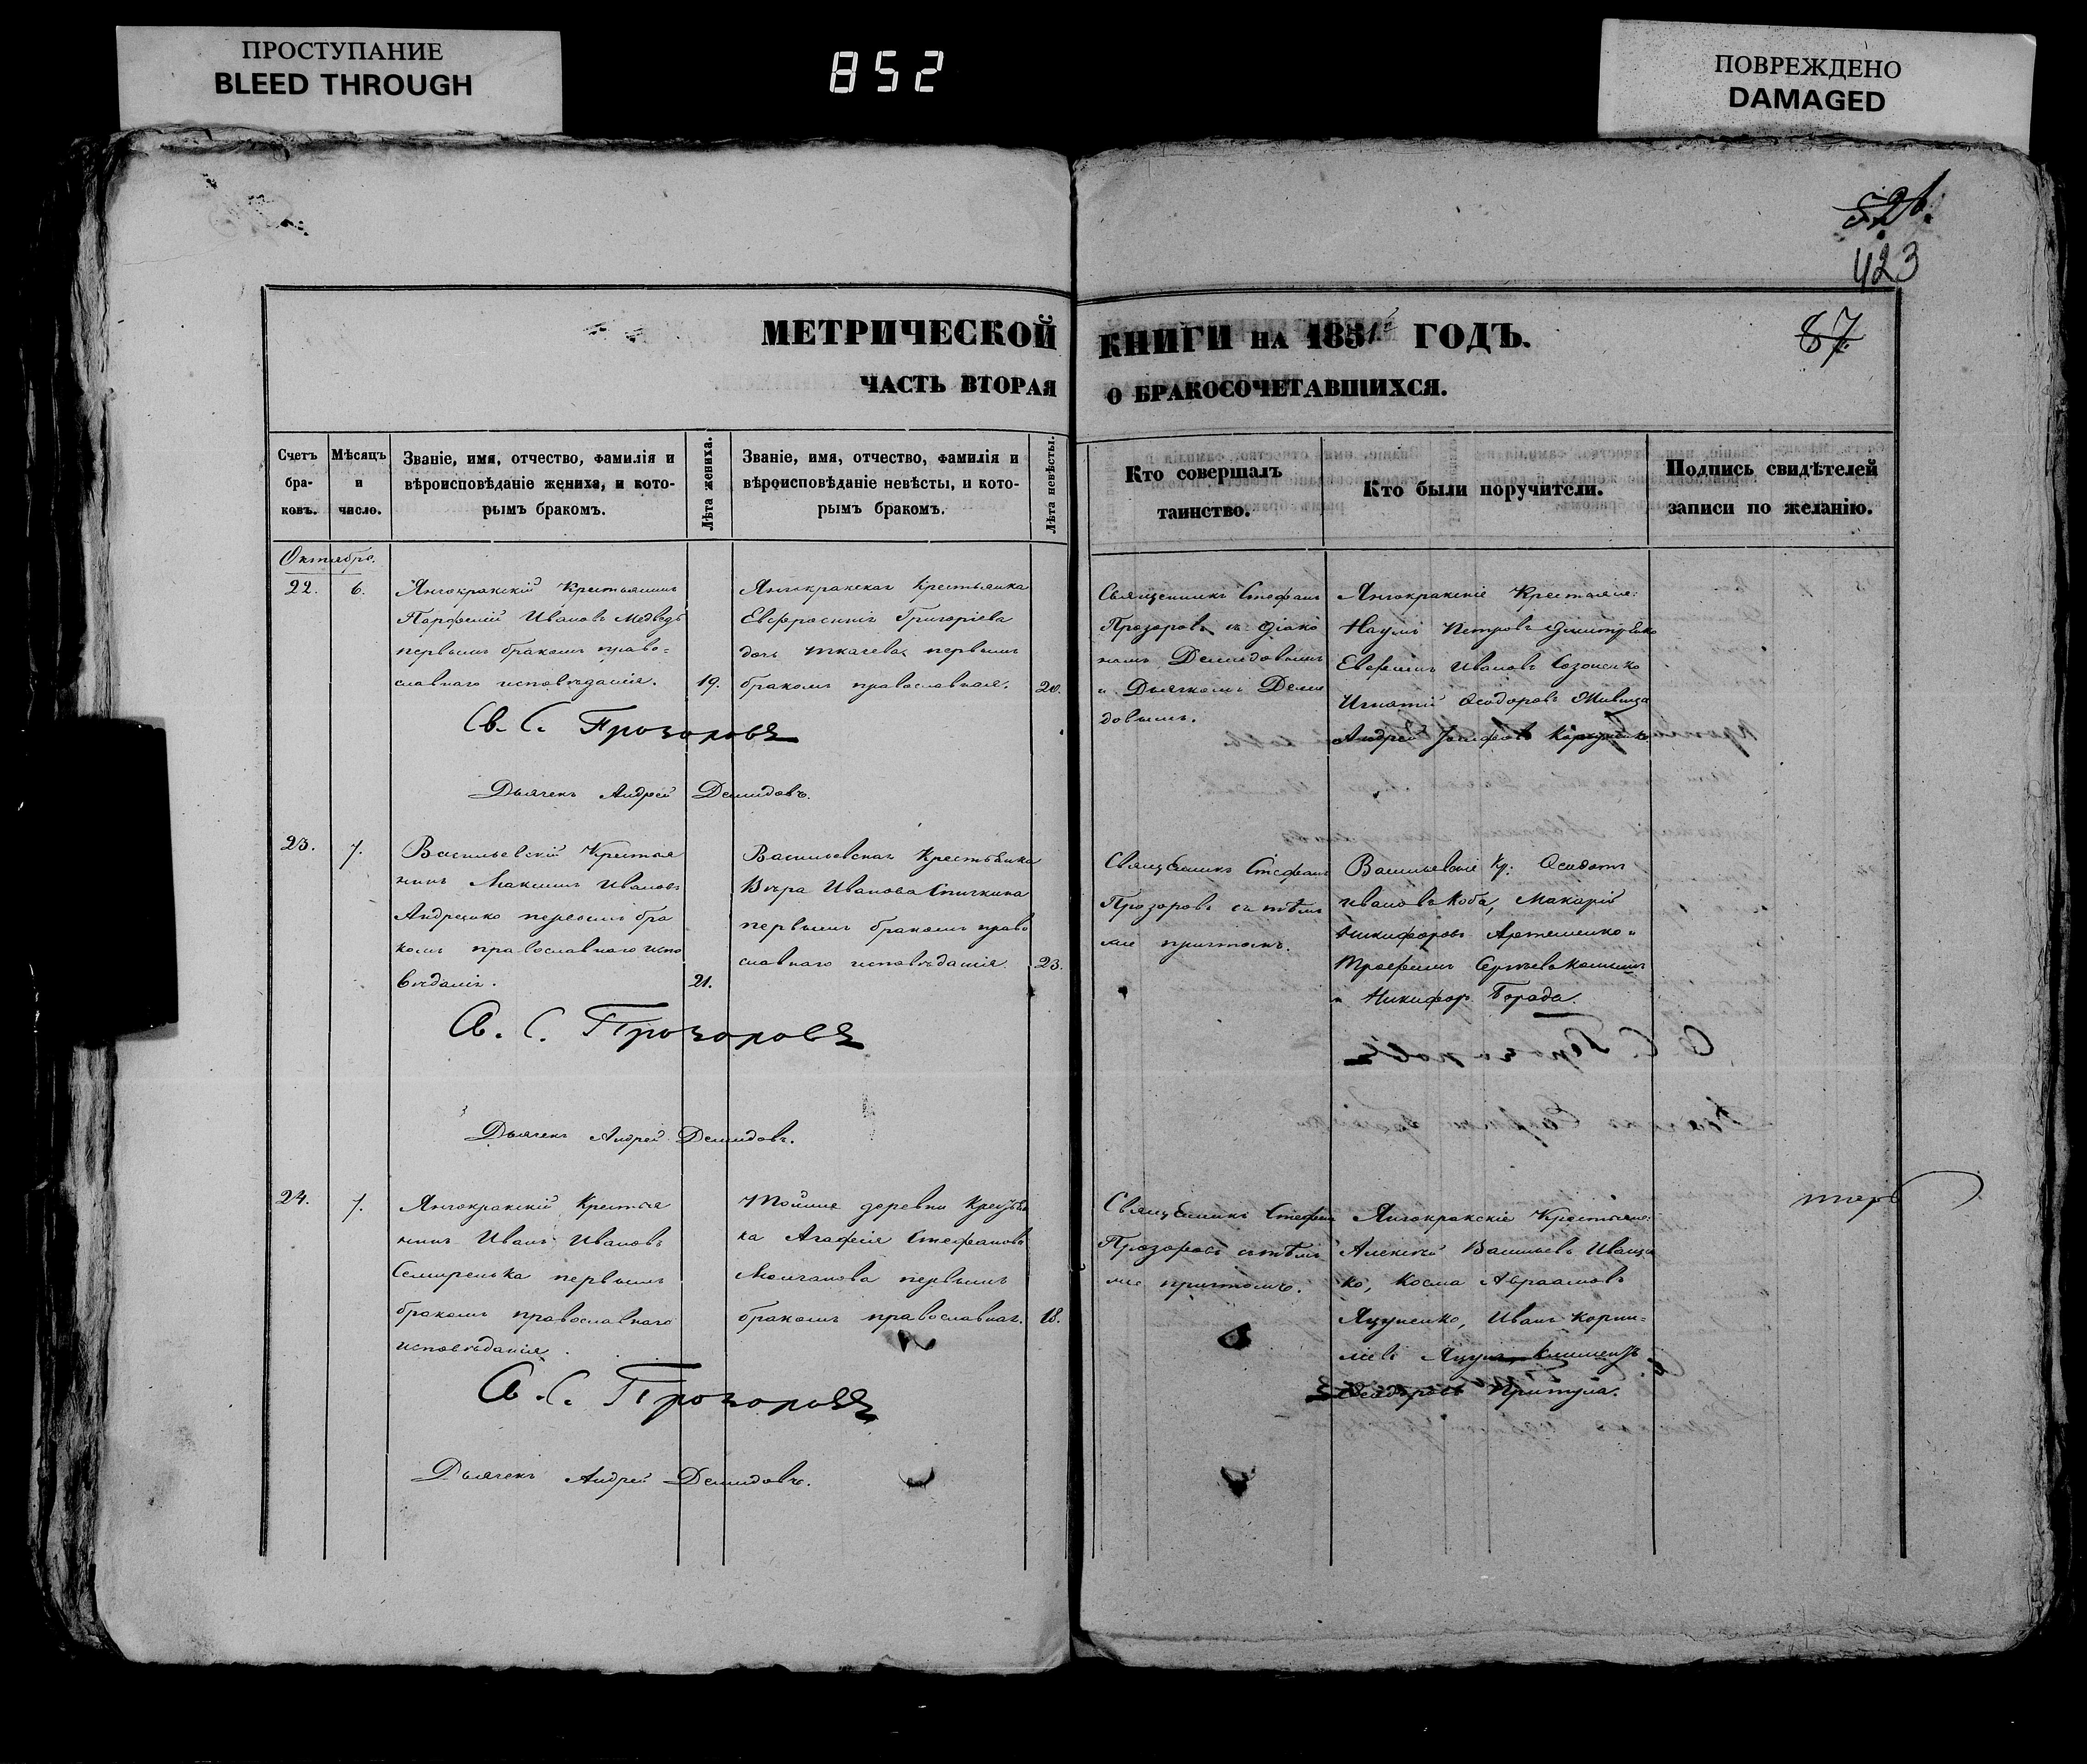 ПРОСТУПАНИЕ
BLEED THROUGH
852
ПОВРЕЖДЕНО
DAMAGED
423
87
МЕТРИЧЕСКОЙ КНИГИ НА 1851 ГОДЪ.
ЧАСТЬ ВТОРАЯ О БРАКОСОЧЕТАВШИХСЯ.
Счетъ
бра-
ковъ.
Мѣсяцъ
и
число.
Званіе, имя, отчество, фамилія и
вѣроисповѣданіе жениха, и кото-
рымъ бракомъ.
Лѣта жениха.
Званіе, имя, отчество, фамилія и
вѣроисповѣданіе невѣсты, и кото-
рымъ бракомъ.
Лѣта невѣсты.
Кто совершалъ
таинство.
Кто были поручители.
Подпись свидѣтелей
записи по желанію.
Октября.
22.
6.
Янчокракскій Крестьянинъ
Парфеній Ивановъ Медведь
первымъ бракомъ право=
славнаго исповѣданія.
19.
Янчокракская Крестьянка
Евфросинія Григоріева
дочь Ткачева первымъ
бракомъ православная.
20.
Священникъ Стефанъ
Прозоровъ съ діако
номъ Демидовымъ
и Дьячкомъ Деми
довымъ.
Янчокракскіе Крестьяне:
Наумъ Петровъ Дмитренко
Евфимъ Ивановъ Созоненко
Игнатій Ѳеодоровъ
Андрей
Св. С. Прозоровъ
Дьячекъ Андрей Демидовъ.
23.
7.
Васильевскій Крестья
нинъ Максимъ Ивановъ
Андреенко первымъ бра
комъ православнаго испо
вѣданія.
21.
Васильевская Крестьянка
Вѣра Иванова Спичкина
первымъ бракомъ право
славнаго исповѣданія
23.
Священникъ Стефанъ
Прозоровъ съ тѣмъ
же причтомъ.
Васильевскіе Кр: Ѳеодотъ
Ивановъ Коба, Макарій
Никифоровъ Артеменко и
Трофимъ Сергѣевъ
и Никифоръ Борода.
Св. С. Прозоровъ
Дьячекъ Андрей Демидовъ.
24.
7.
Янчокракскій Крестья
нинъ Иванъ Ивановъ
Семиренька первымъ
бракомъ православнаго
исповѣданія.
Тойже деревни Крестьян
ка Агафія Стефанова
Молчанова первымъ
бракомъ православная.
18.
Священникъ Стефанъ
Прозоровъ съ тѣмъ
же причтомъ.
Янчокракскіе Крестьяне:
Алексѣй Васильевъ Иваще
ко, Косма Авраамовъ
Яценко, Иванъ Корни=
ліевъ
Ѳеодоровъ Притула.
Св. С. Прозоровъ
Дьячекъ Андрей Демидовъ.